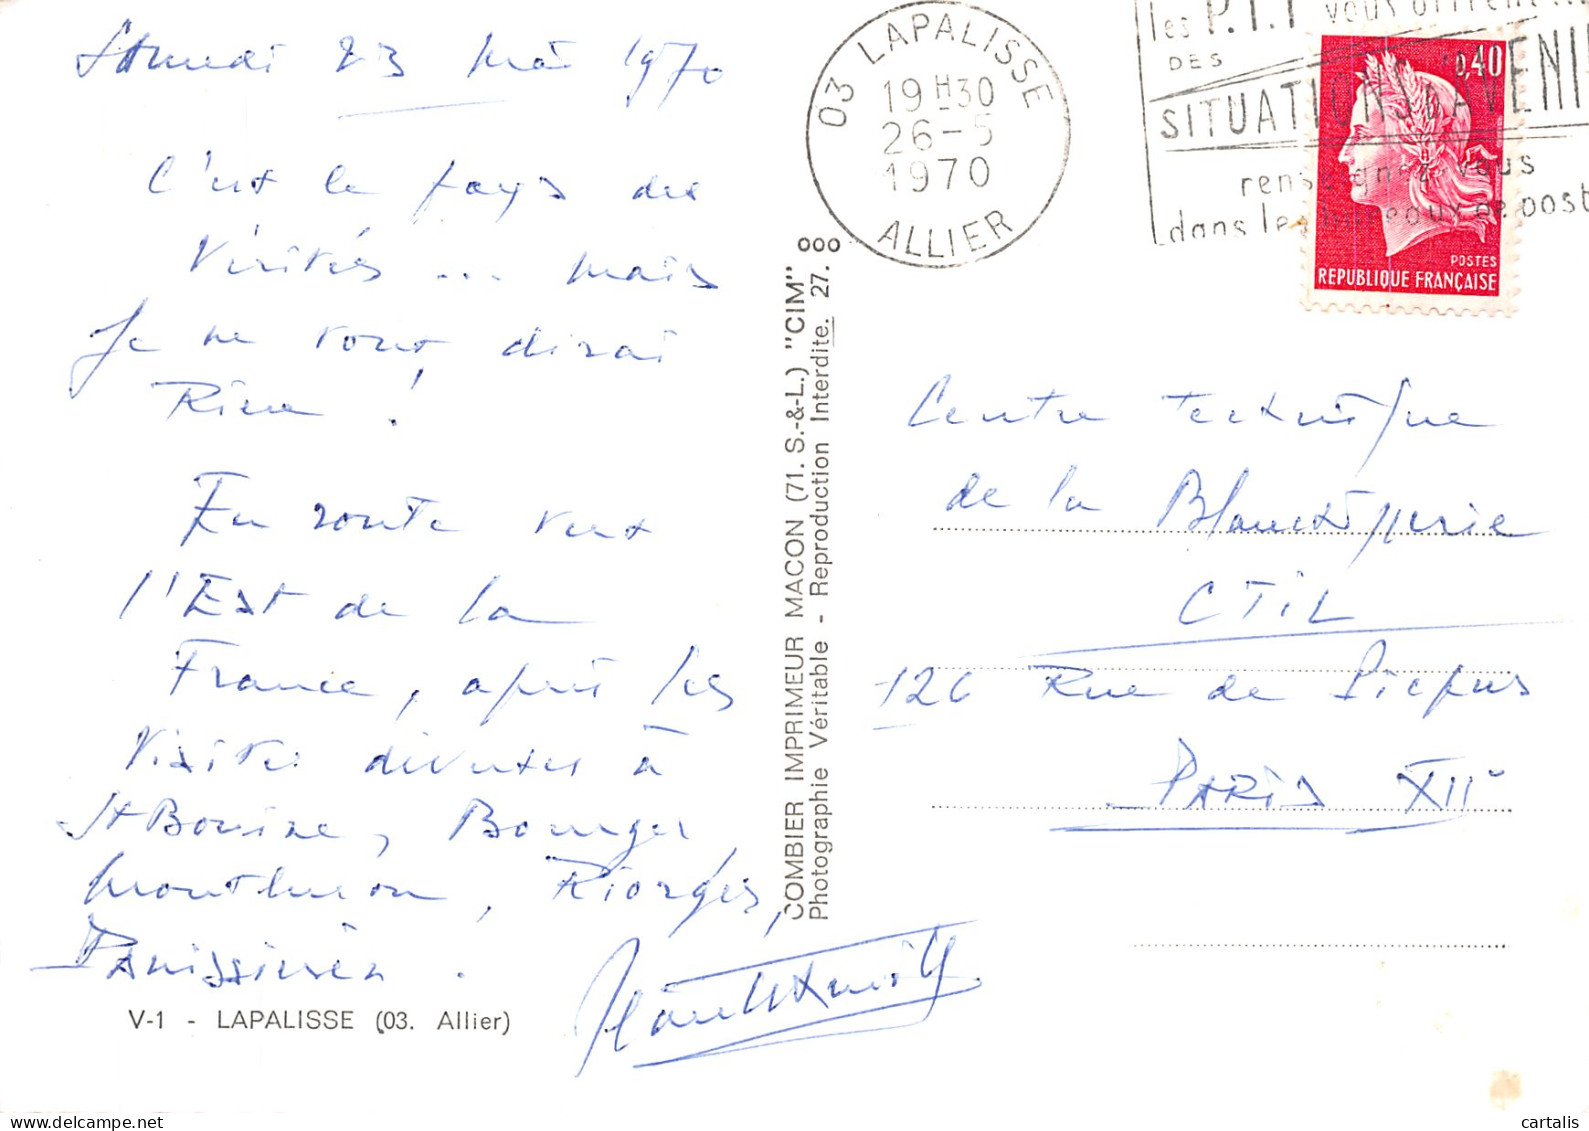 Samedi 23 Mai 1970
C'est le pays des
Vérités ... mais
Je ne vous dirai
Rien !
En route vers
l'Est de la
France, après les
Visites diverses à
Bourges
Montluçon, Riorges,
Panissières.
V-1 - LAPALISSE (03. Allier)
COMBIER IMPRIMEUR MACON (71. S.-&-L.) "CIM"
Photographie Véritable - Reproduction Interdite. 27. 000
03 LAPALISSE
19H30
26-5
1970
ALLIER
les P.T.T vous offrent
DES
SITUATIONS D'AVENI
renseignez vous
dans les bureaux de post
0,40
POSTES
REPUBLIQUE FRANÇAISE
Centre Technique
de la Blanchisserie
CTIL
126 Rue de Picpus
PARIS XIIe
cartalis.com